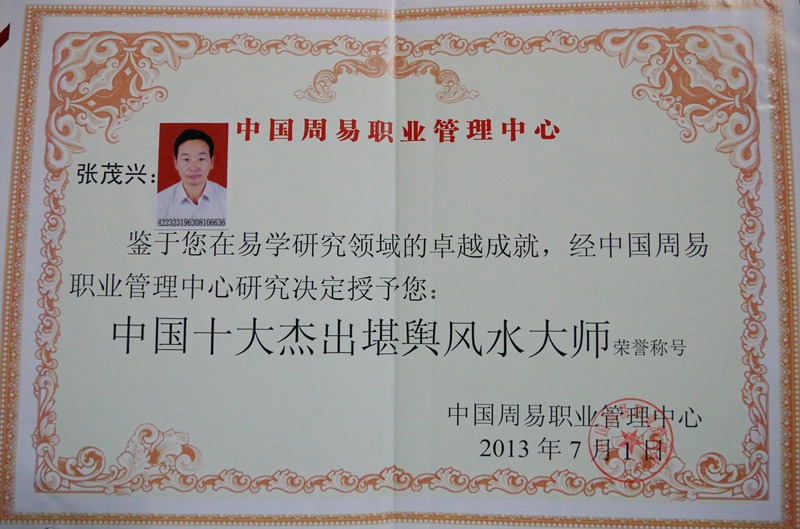 中国周易职业管理中心
张茂兴：
422323196308106636
鉴于您在易学研究领域的卓越成就，经中国周易
职业管理中心研究决定授予您：
中国十大杰出堪舆风水大师荣誉称号
中国周易职业管理中心
2013 年 7 月 1 日